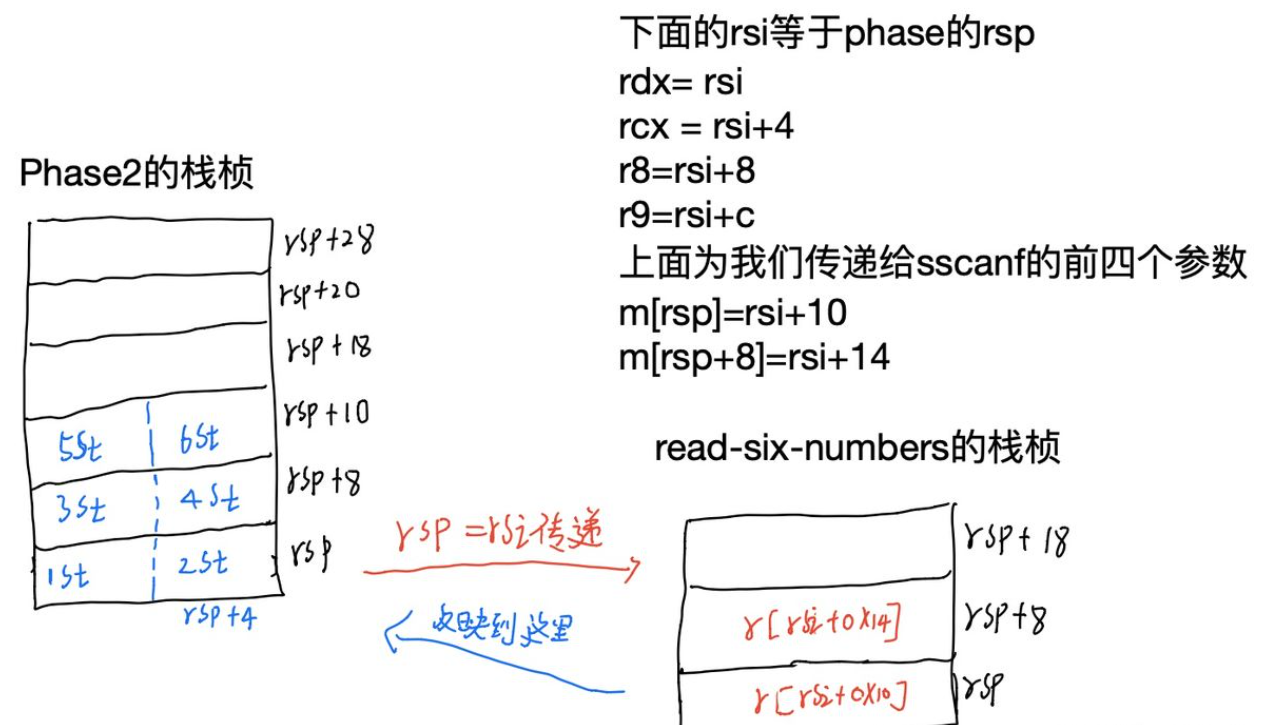 下面的rsi等于phase的rsp
rdx= rsi
rcx = rsi+4
r8=rsi+8
r9=rsi+c
上面为我们传递给sscanf的前四个参数
m[rsp]=rsi+10
m[rsp+8]=rsi+14
Phase2的栈桢
rsp+28
rsp+20
rsp+18
rsp+10
5st 6st
rsp+8
3st 4st
rsp
1st 2st
rsp+4
rsp=rsi传递
反映到这里
read-six-numbers的栈桢
rsp+18
r[rsi+0x14]
rsp+8
r[rsi+0x10]
rsp